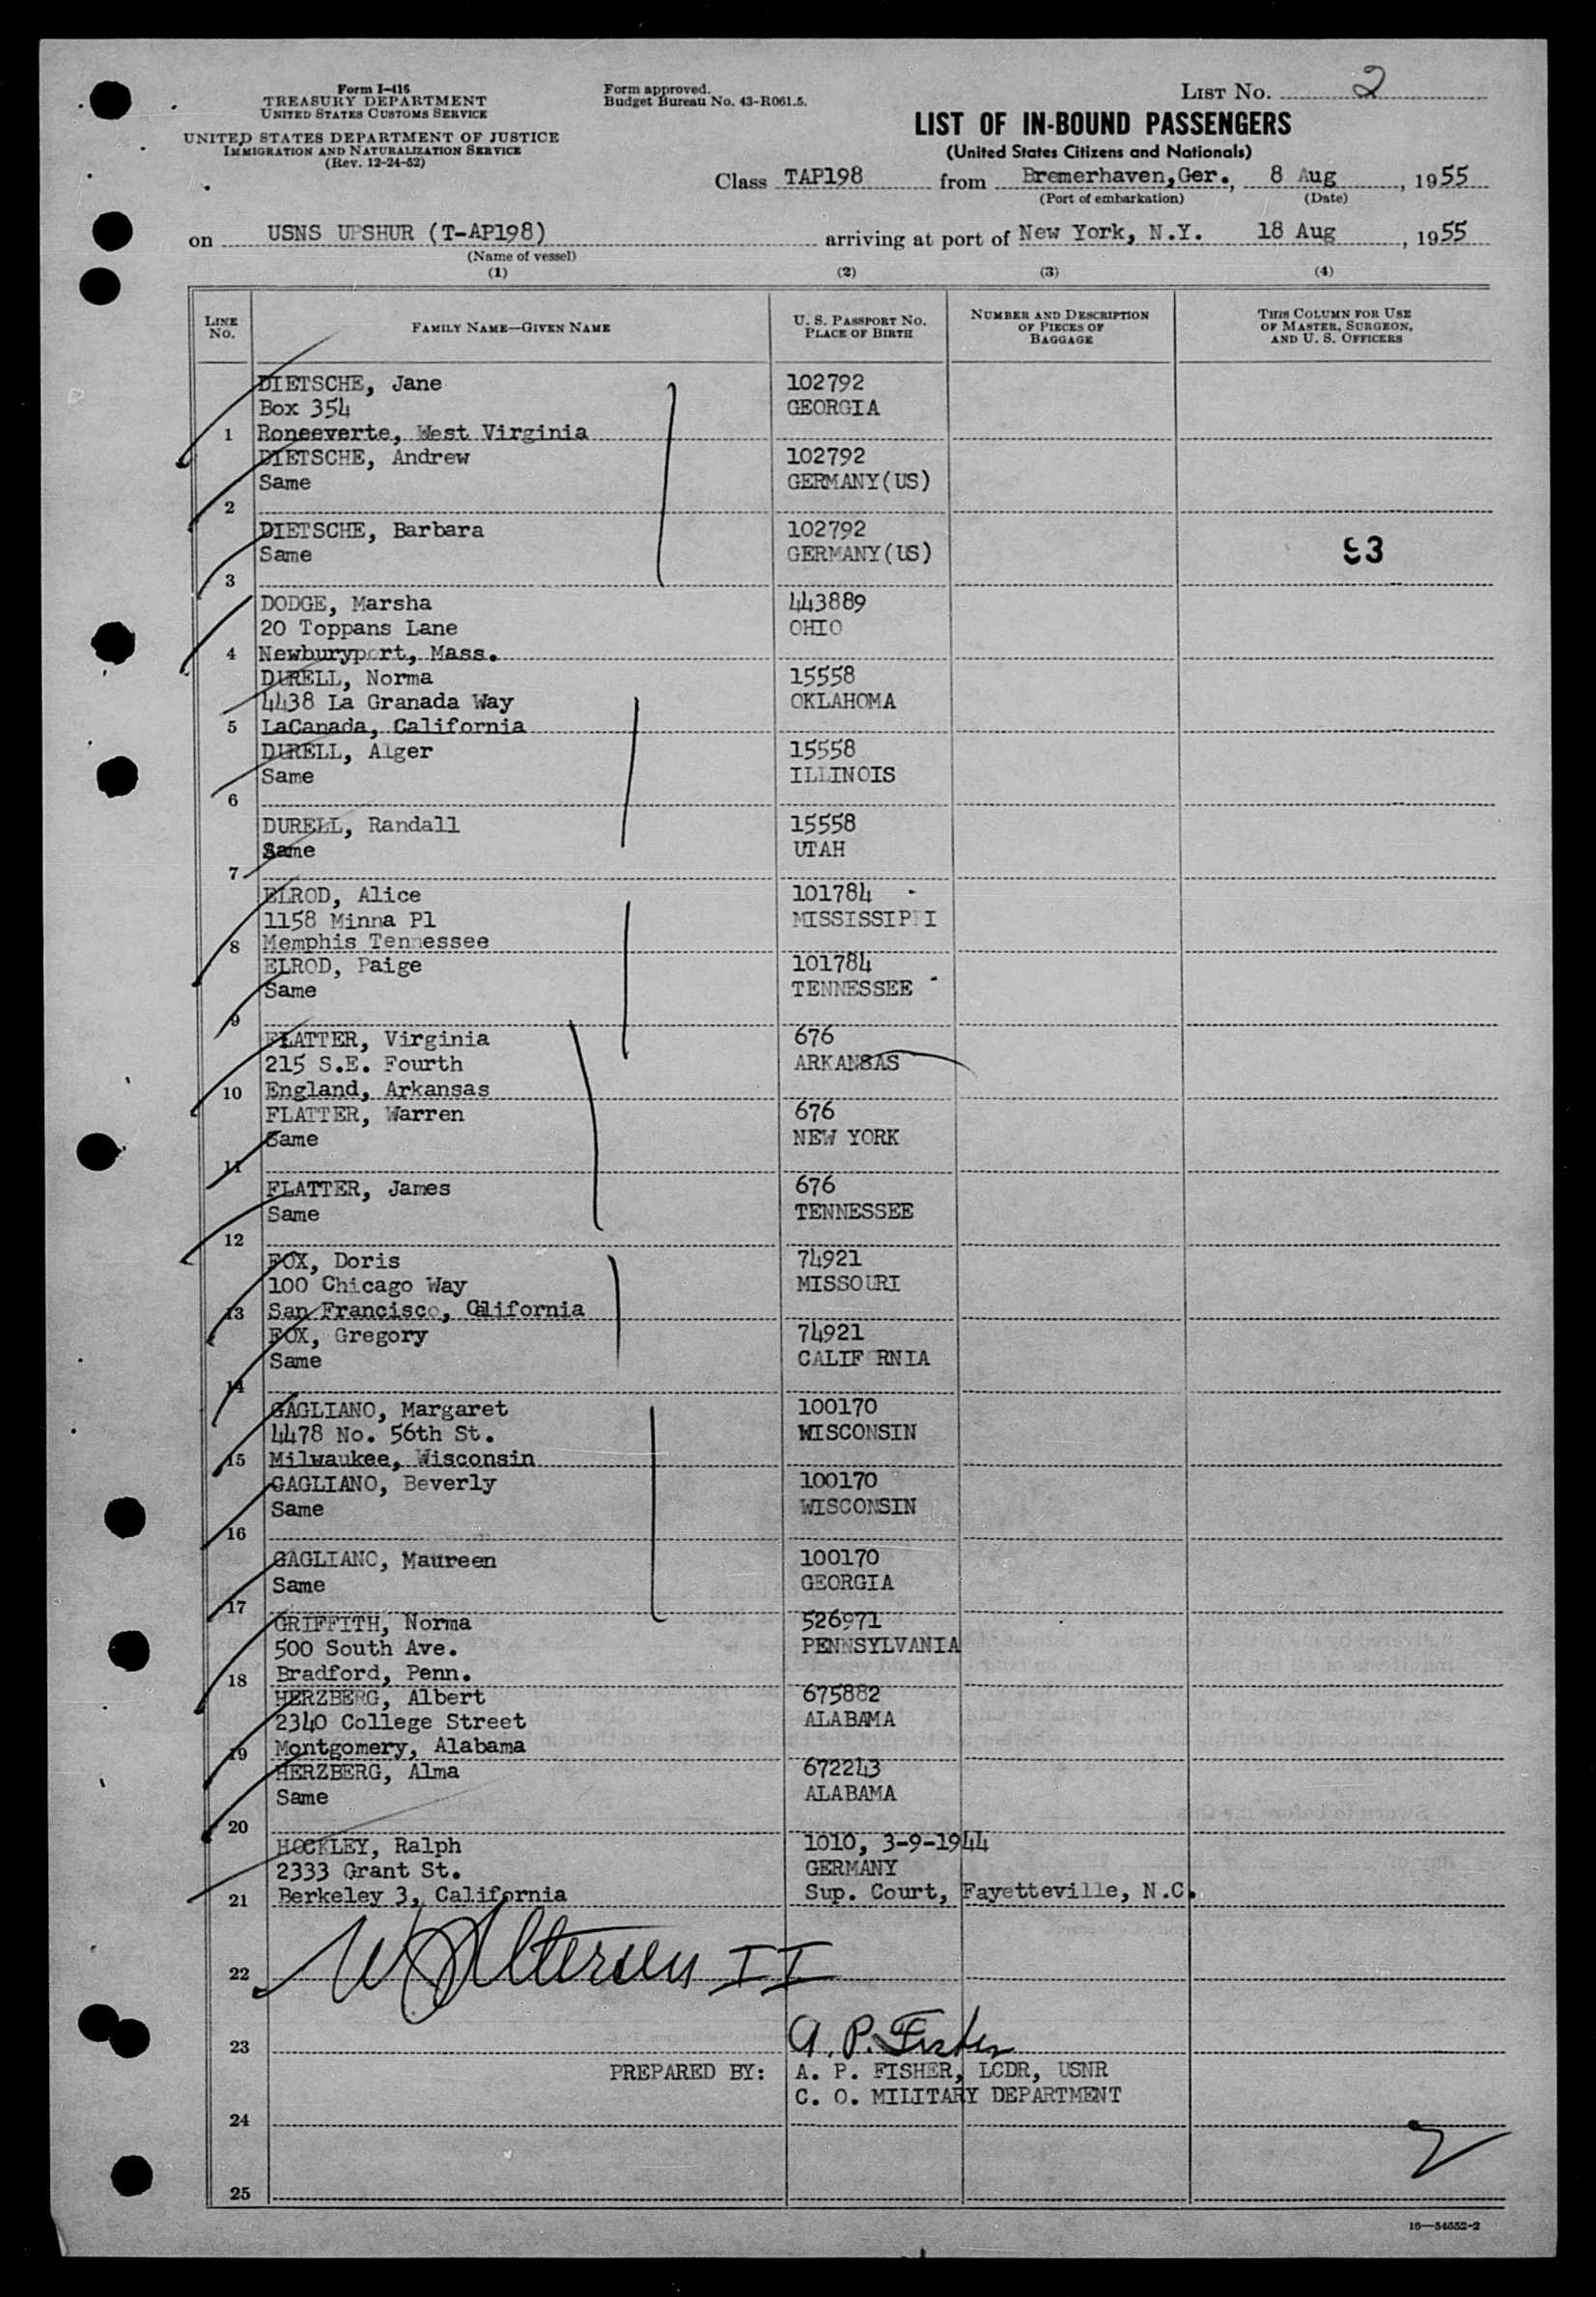 Form I-416
TREASURY DEPARTMENT
UNITED STATES CUSTOMS SERVICE
UNITED STATES DEPARTMENT OF JUSTICE
IMMIGRATION AND NATURALIZATION SERVICE
(Rev. 12-24-52)
Form approved.
Budget Bureau No. 43-R061.5.
LIST NO. 2
LIST OF IN-BOUND PASSENGERS
(United States Citizens and Nationals)
Class TAP198 from Bremerhaven,Ger., 8 Aug, 1955
(Port of embarkation) (Date)
on USNS UPSHUR (T-AP198) arriving at port of New York, N.Y. 18 Aug, 1955
(Name of vessel)
(1) (2) (3) (4)
LINE NO. FAMILY NAME—GIVEN NAME U. S. PASSPORT NO. PLACE OF BIRTH NUMBER AND DESCRIPTION OF PIECES OF BAGGAGE THIS COLUMN FOR USE OF MASTER, SURGEON, AND U. S. OFFICERS
DIETSCHE, Jane 102792
Box 354 GEORGIA
1 Roneeverte, West Virginia
DIETSCHE, Andrew 102792
Same GERMANY(US)
2
DIETSCHE, Barbara 102792
Same GERMANY(US) 93
3
DODGE, Marsha 443889
20 Toppans Lane OHIO
4 Newburyport, Mass.
DURELL, Norma 15558
4438 La Granada Way OKLAHOMA
5 LaCanada, California
DURELL, Alger 15558
Same ILLINOIS
6
DURELL, Randall 15558
Same UTAH
7
ELROD, Alice 101784
1158 Minna Pl MISSISSIPPI
8 Memphis Tennessee
ELROD, Paige 101784
Same TENNESSEE
9
FLATTER, Virginia 676
215 S.E. Fourth ARKANSAS
10 England, Arkansas
FLATTER, Warren 676
Same NEW YORK
11
FLATTER, James 676
Same TENNESSEE
12
FOX, Doris 74921
100 Chicago Way MISSOURI
13 San Francisco, California
FOX, Gregory 74921
Same CALIFORNIA
14
GAGLIANO, Margaret 100170
4478 No. 56th St. WISCONSIN
15 Milwaukee, Wisconsin
GAGLIANO, Beverly 100170
Same WISCONSIN
16
GAGLIANO, Maureen 100170
Same GEORGIA
17
GRIFFITH, Norma 526971
500 South Ave. PENNSYLVANIA
18 Bradford, Penn.
HERZBERG, Albert 675882
2340 College Street ALABAMA
19 Montgomery, Alabama
HERZBERG, Alma 672243
Same ALABAMA
20
HOCKLEY, Ralph 1010, 3-9-1944
2333 Grant St. GERMANY
21 Berkeley 3, California Sup. Court, Fayetteville, N.C.
22
23 A. P. Fisher
PREPARED BY: A. P. FISHER, LCDR, USNR
C. O. MILITARY DEPARTMENT
24
25
16—54652-2